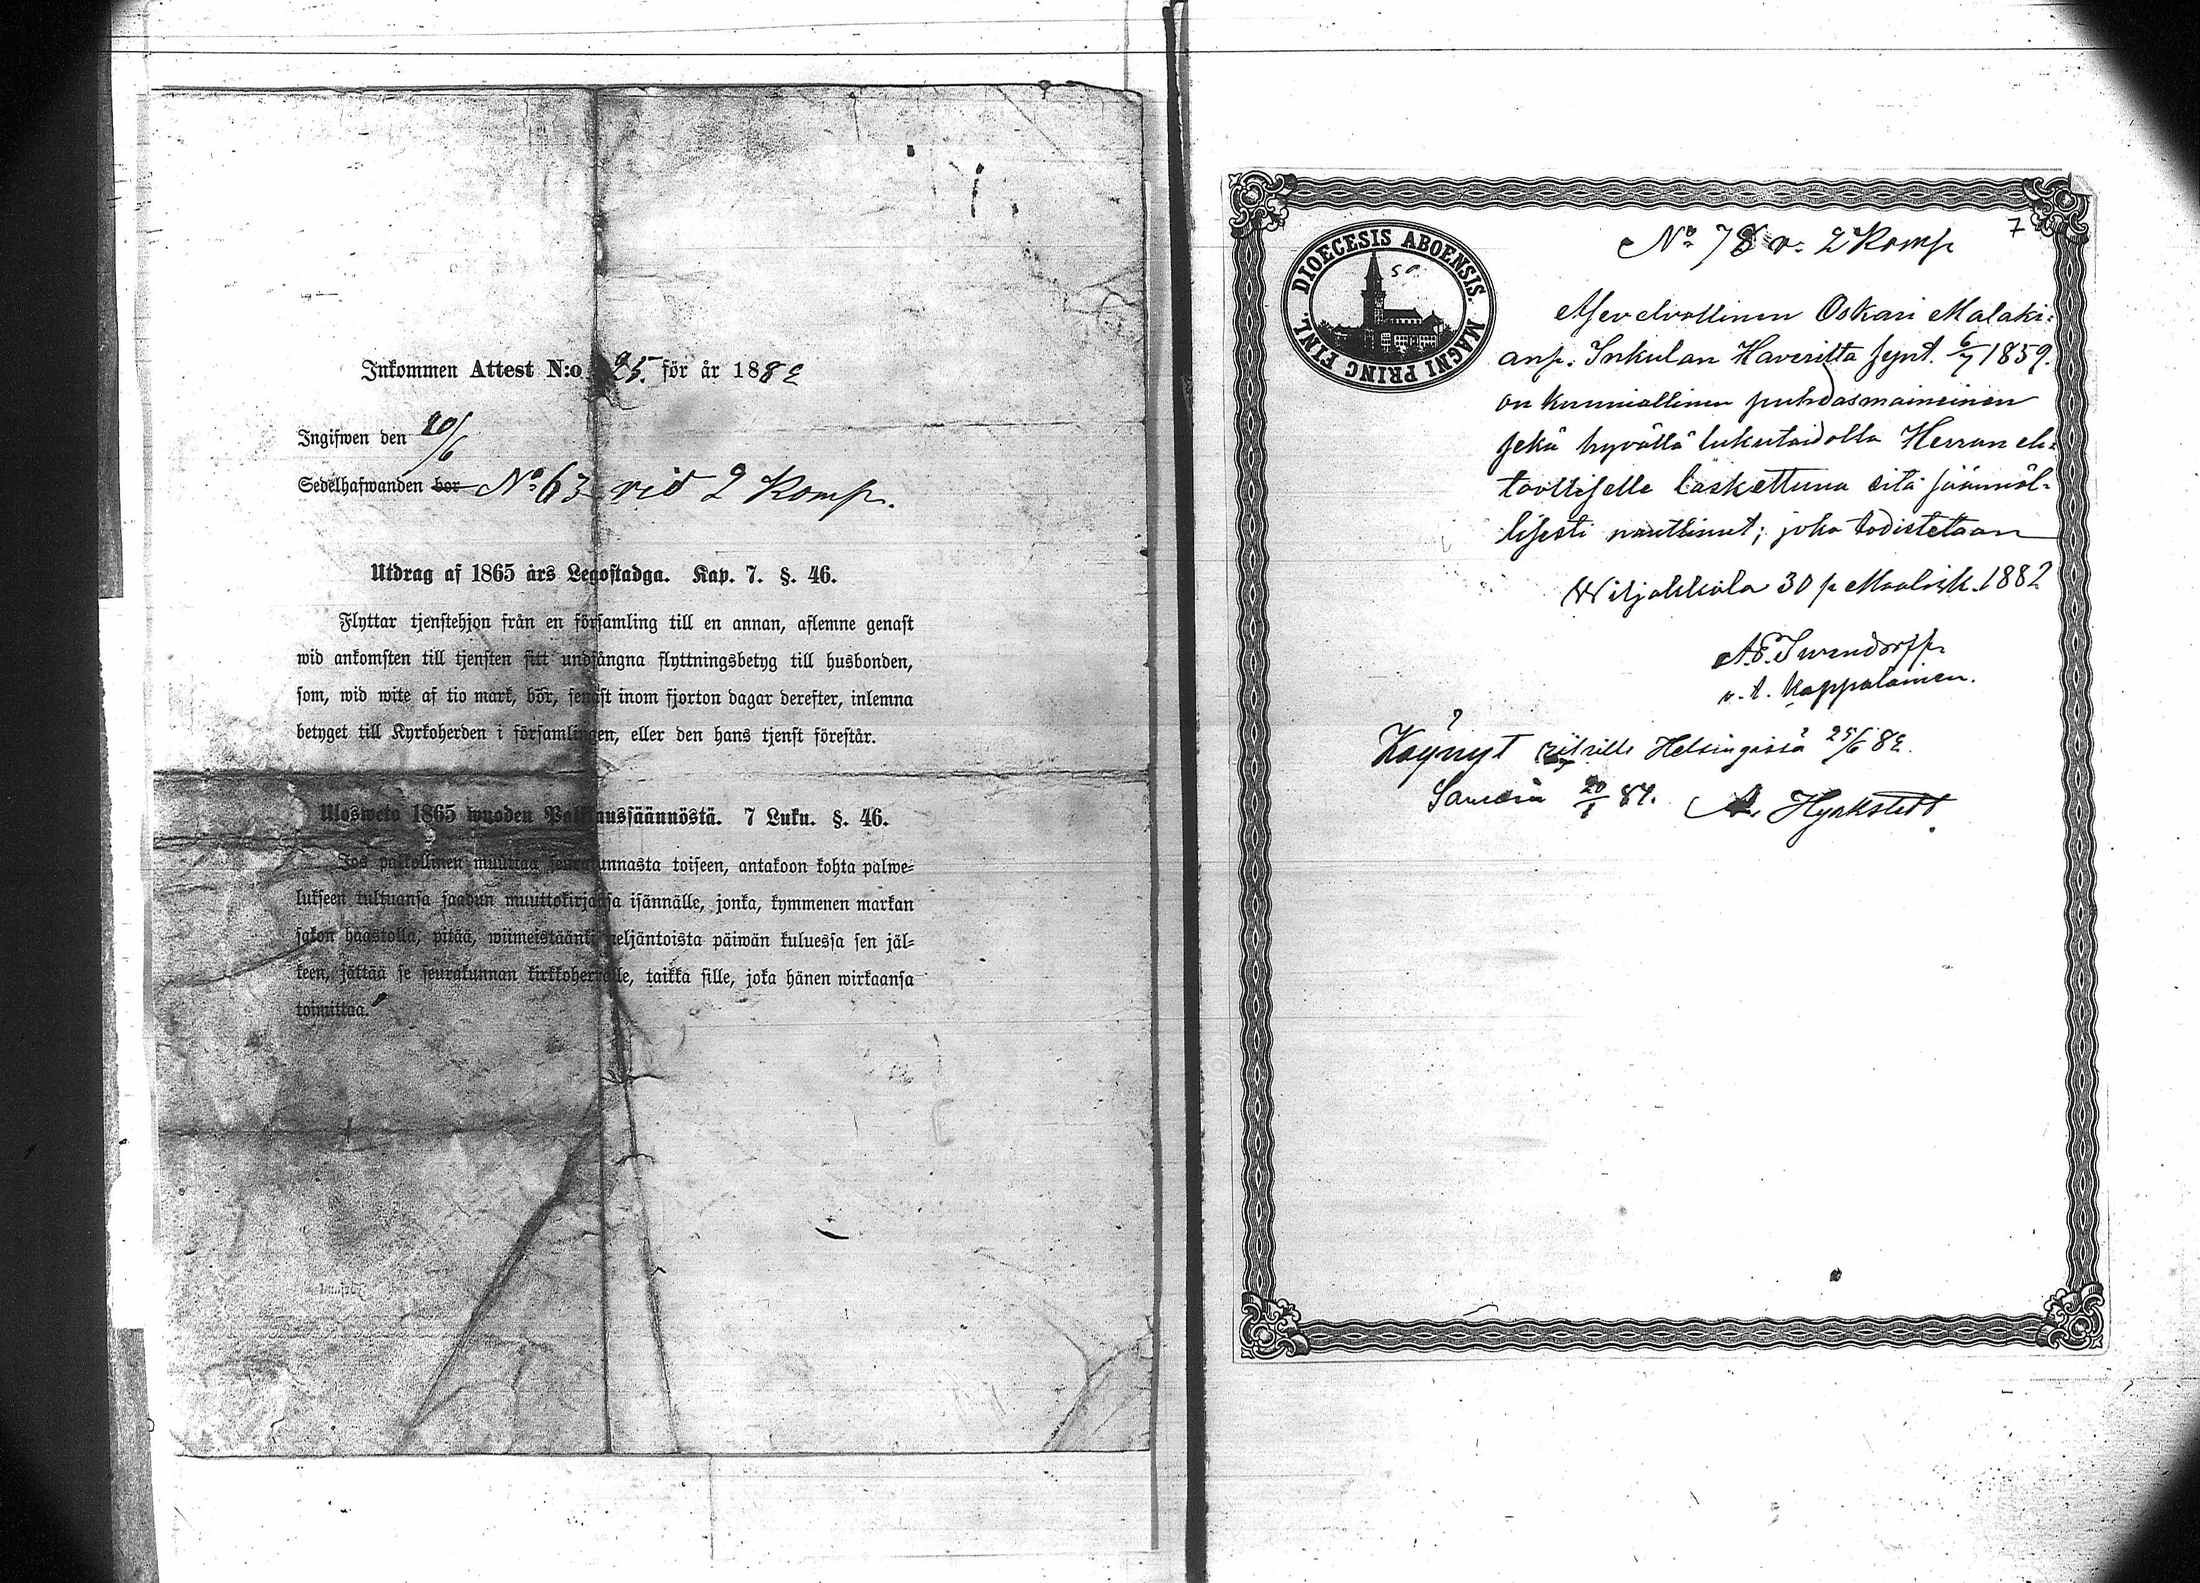 Inkommen Attest N:o 95. för år 1882
Ingifwen den 20/6
Sedelhafwanden bor No 63 vid 2 Komp.
Utdrag af 1865 års Legostadga. Kap. 7. §. 46.
Flyttar tjenstehjon från en församling till en annan, aflemne genast
wid ankomsten till tjensten sitt undfångna flyttningsbetyg till husbonden,
som, wid wite af tio mark, bör, senast inom fjorton dagar derefter, inlemna
betyget till Kyrkoherden i församlingen, eller den hans tjenst förestår.
Ulosweto 1865 wuoden Palkkaussäännöstä. 7 Luku. §. 46.
Jos palkollinen muuttaa seurakunnasta toiseen, antakoon kohta palwe-
lukseen tultuansa saadun muuttokirjansa isännälle, jonka, kymmenen markan
sakon haastolla, pitää, wiimeistäänki neljäntoista päiwän kuluessa sen jäl-
keen, jättää se seurakunnan kirkkoherralle, taikka sille, joka hänen wirkaansa
toimittaa.
7
No 78 v. 2 Komp
DIOECESIS ABOENSIS. MAGNI PRINC FINL.
Asevelvollinen Oskari Malaki-
anp. Inkulan Haverista synt. 6/7 1859.
on kunniallinen puhdasmaineinen
sekä hyvällä lukutaidolla Herran eh-
toolliselle laskettuna sitä säännöl-
lisesti nauttinut; joka todistetaan
Wiljakkala 30 p Maalisk. 1882
A.E. Swendorff
v. t. Kappalainen.
Käynyt ripillä Helsingissä 25/6 82.
Samoin 20/1 84. A. Hyrkstedt